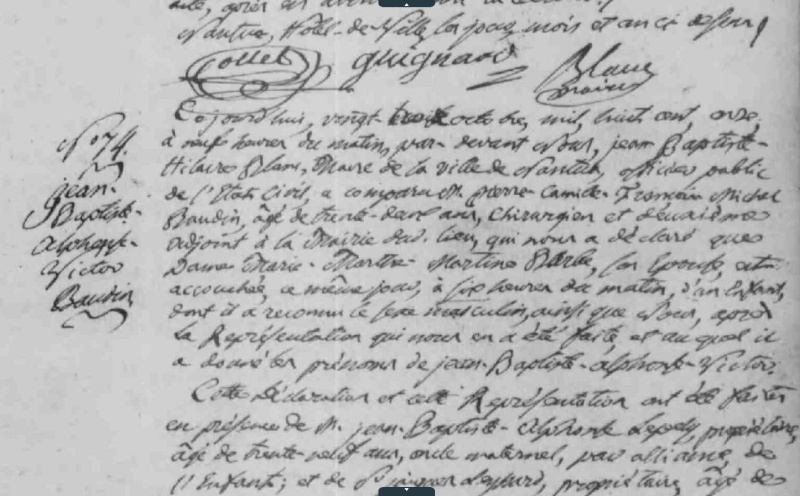 Nantua, Hôtel-de-Ville les jour, mois et an ci-dessus
Collet guignard Blanc
maire
N.º 74.
jean-
Baptiste-
alphonse-
Victor
Baudin
Cejourdhui, vingt trois octobre, mil, huit cent, onze,
à neuf heures du matin, par-devant Nous, jean Baptiste-
Hilaire Blanc, Maire de la ville de Nantua, officier public
de l'Etat Civil, a comparu M. pierre Camille- Michel
Baudin, âgé de trente-deux ans, Chirurgien et deuxième
adjoint à la Mairie dud. lieu, qui nous a déclaré que
Dame Marie- Marthe Martine son Epouse, est
accouchée, ce même jour, à six heures du matin, d'un Enfant,
dont il a reconnu le sexe masculin, ainsi que Nous, après
la Représentation qui nous en a été faite, et auquel il
a donné les prénoms de jean-Baptiste-alphonse-Victor.
Cette Déclaration et cette Représentation ont été faites
en présence de M. jean-Baptiste-alphonse propriétaire,
âgé de trente-neuf ans, oncle maternel, par alliance, de
l'Enfant; et de propriétaire, âgé de